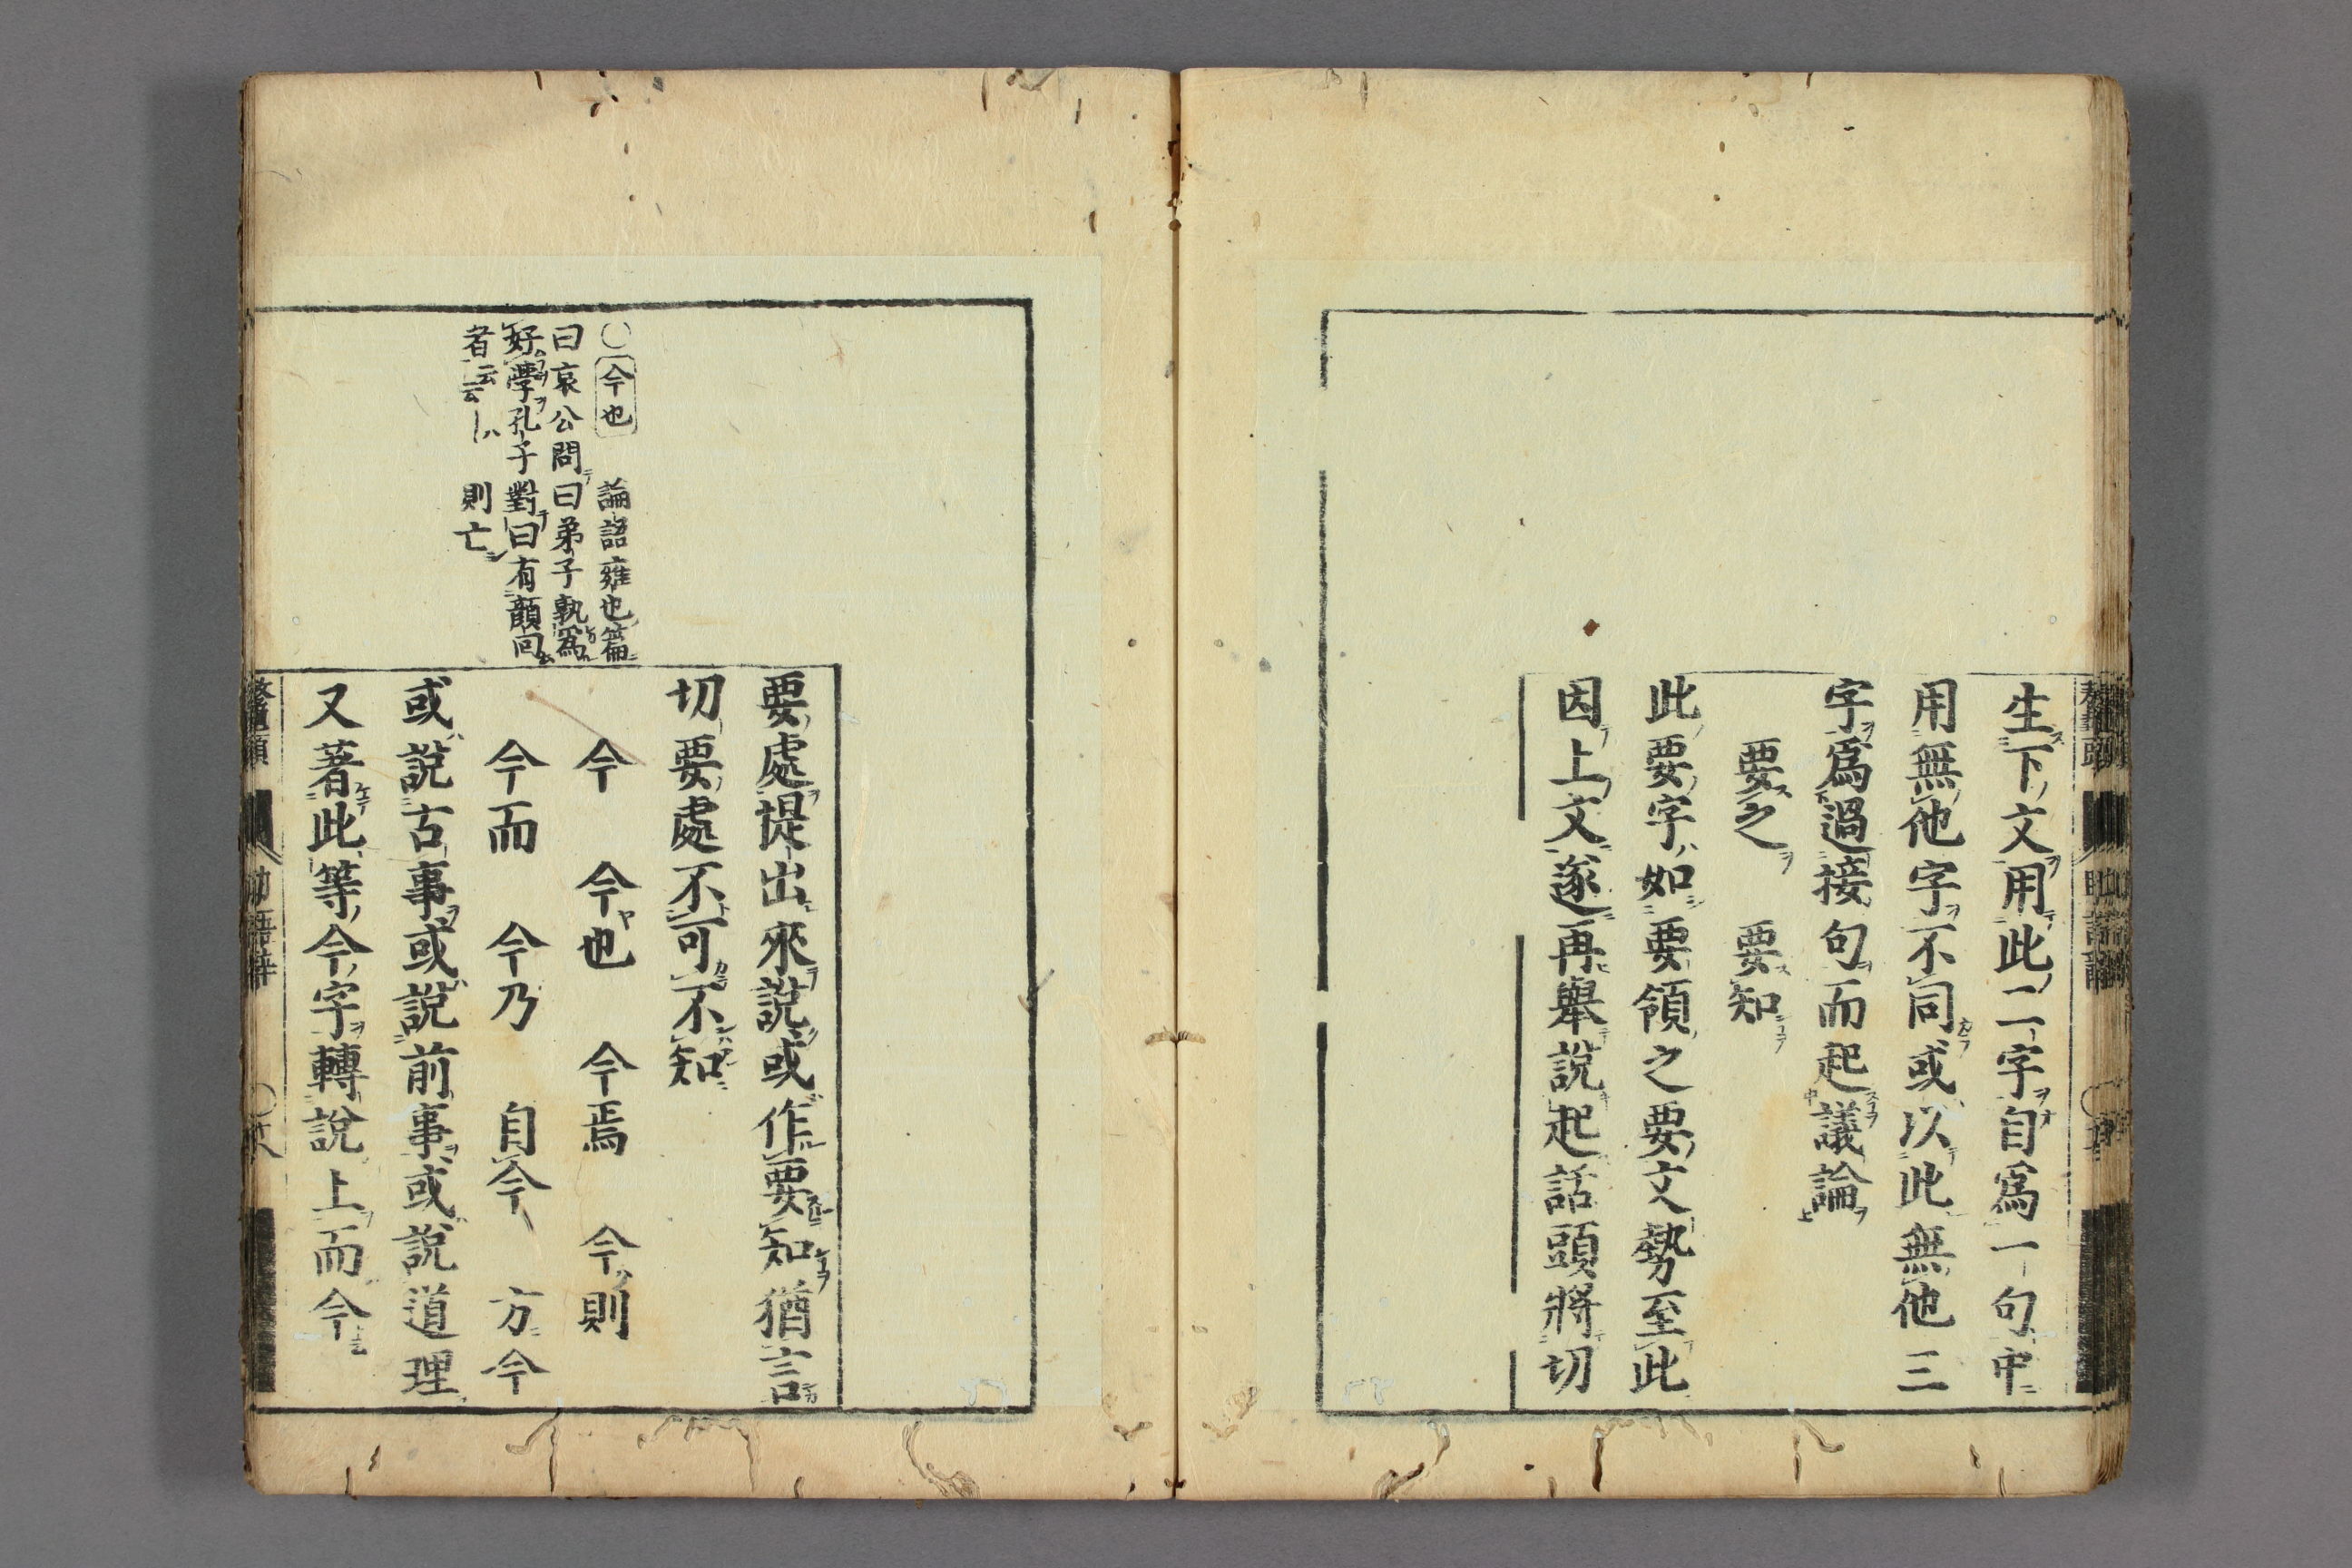 生下文用此二字自爲一句中
用無他字不同或以此無他三
字爲過接句而起議論
要之 要知
此要字如要領之要文勢至此
因上文遂再擧説起話頭將切
〇今也 論語雍也篇
曰哀公問曰弟子孰爲
好學孔子對曰有顔回
者云云 則亡
要處提出來說或作要知猶言
切要處不可不知
今 今也 今焉 今則
今而 今乃 自今 方今
或說古事或說前事或說道理
又著此等今字轉說上而今